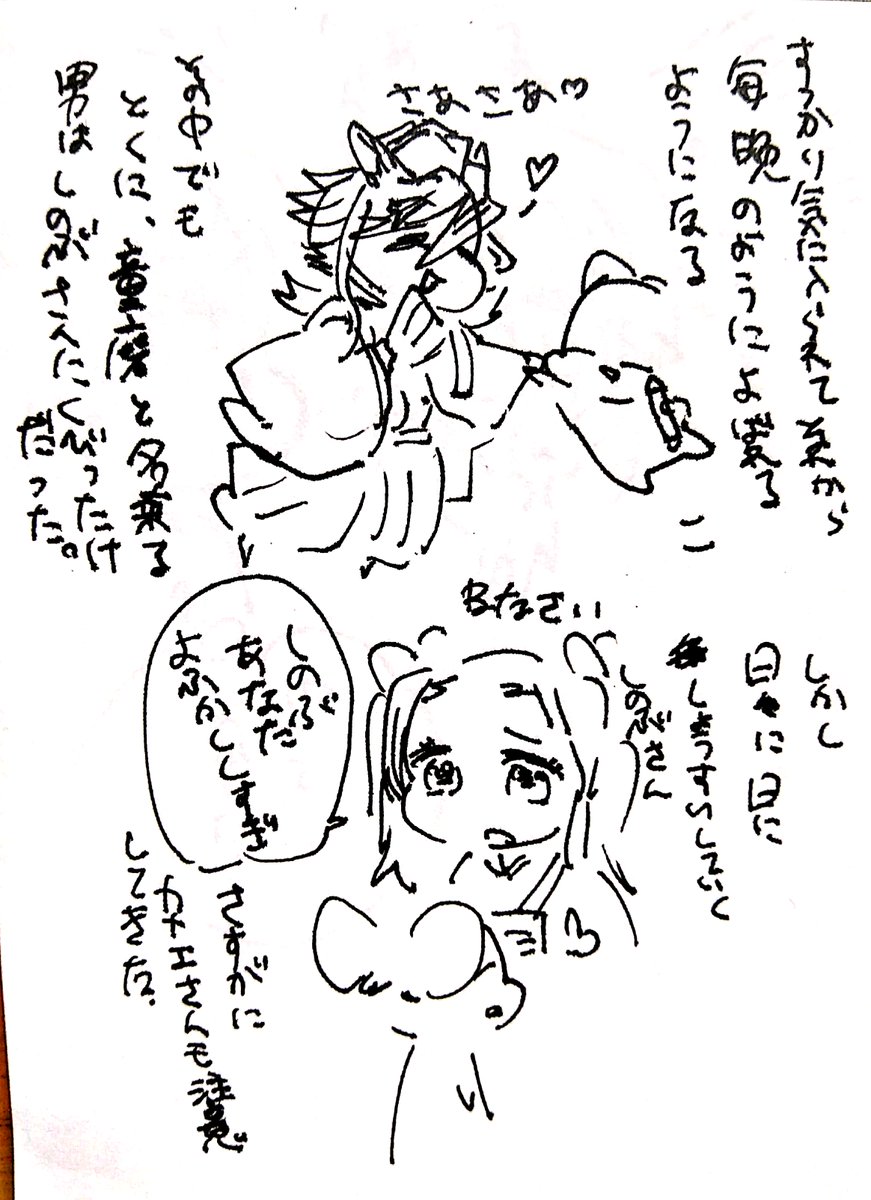 すっかり気に入られて 系から
毎晩のようによばれる
ようになる
さあさあ♡
その中でも
とくに、童磨と名乗る
男はしのぶさんにくびったけ
だった。
しかし
日に日に
しょうすいしていく
しのぶさん
なさい
しのぶ
あなた
よふかししすぎ
さすがに
カナエさんも注意
してきた。